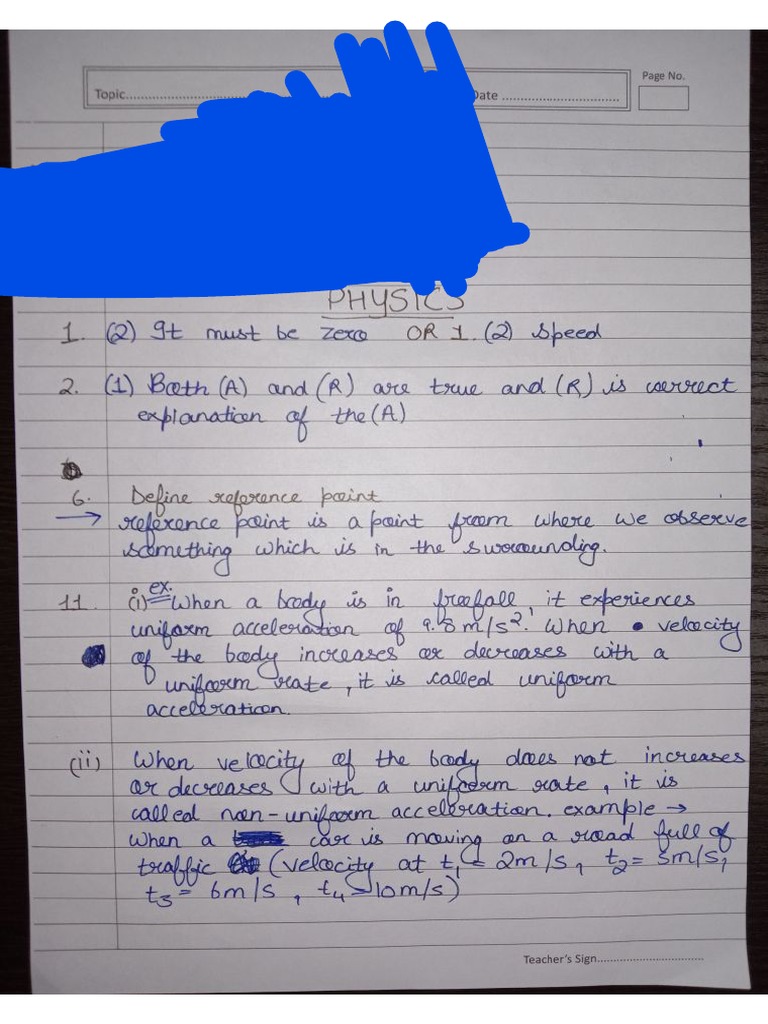 Page No.
Topic
Date
PHYSICS
1. (2) It must be zero OR 1. (2) Speed
2. (1) Both (A) and (R) are true and (R) is correct
explanation of the (A)
6. Define reference point
→ reference point is a point from where we observe
something which is in the surrounding.
11. (i) ex. When a body is in freefall, it experiences
uniform acceleration of 9.8 m/s². When velocity
of the body increases or decreases with a
uniform rate, it is called uniform
acceleration.
(ii) When velocity of the body does not increases
or decreases with a uniform rate, it is
called non-uniform acceleration. example →
When a car is moving on a road full of
traffic (velocity at t₁ = 2m/s, t₂ = 3m/s,
t₃ = 6m/s, t₄ = 10m/s)
Teacher's Sign